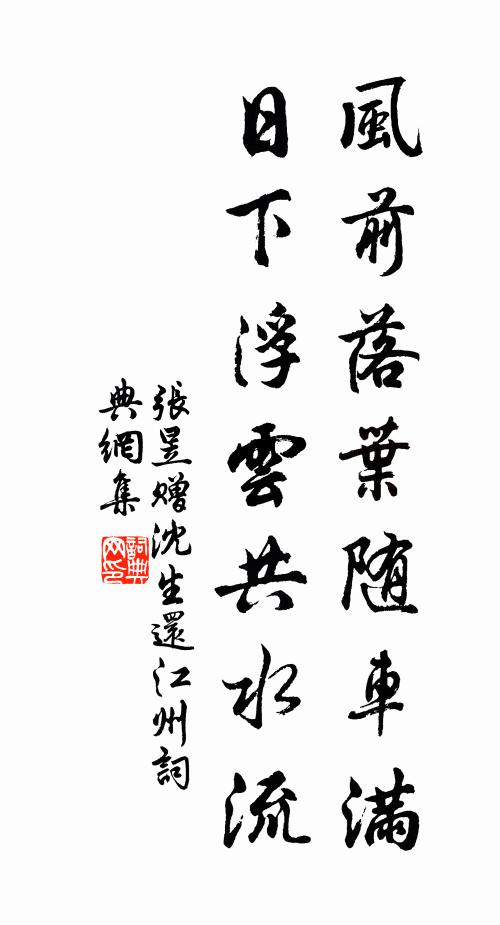 風前落葉随車滿
日下浮雲共水流
張昱贈沈生還江州詞
典網集
詞典
网印